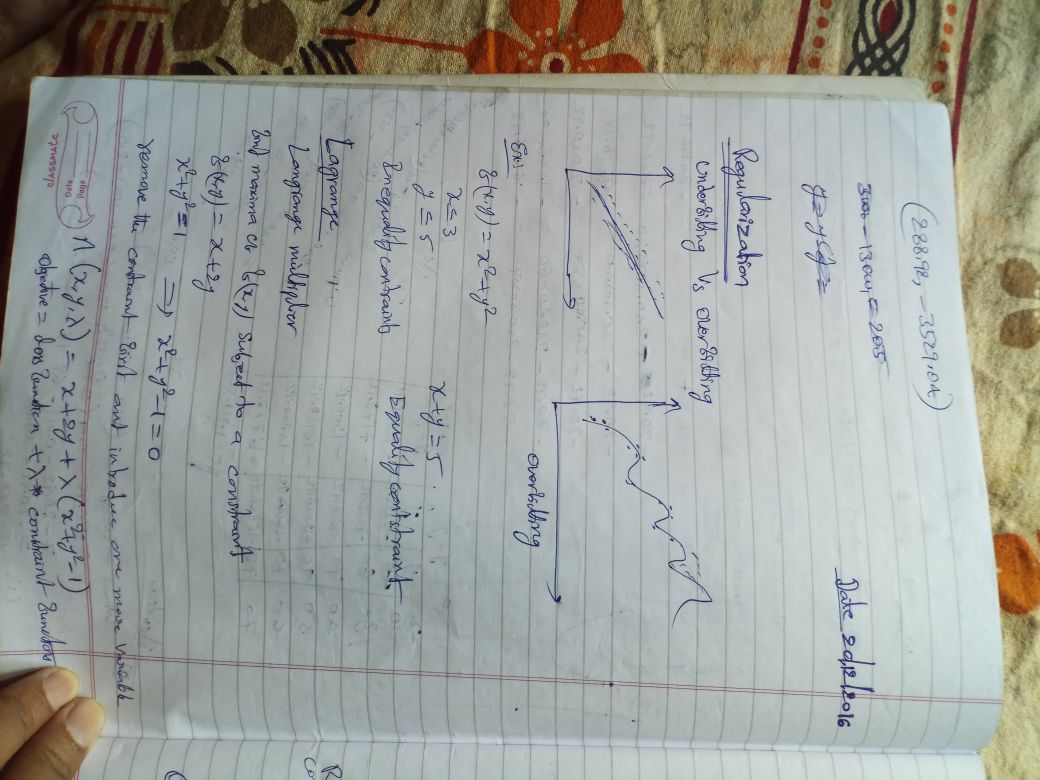 (288.98, -3529.04)
Date 20/12/2016
= 205
y = y
Regularization
underfitting Vs overfitting
overfitting
Ex:
f(x,y) = x²+y²
x ≤ 3
y ≤ 5
x+y = 5
Inequality contraint
Equality contstraint
Lagrange
Langrange multiplier
find maxima of f(x,y) subject to a constraint
f(x,y) = x+2y
x²+y² = 1 ⇒ x²+y²-1=0
remove the constraint first and introduce one more variable
(x,y,λ) = x+2y + λ(x²+y²-1)
objective = loss function + λ* constraint function
classmate
Date
Page